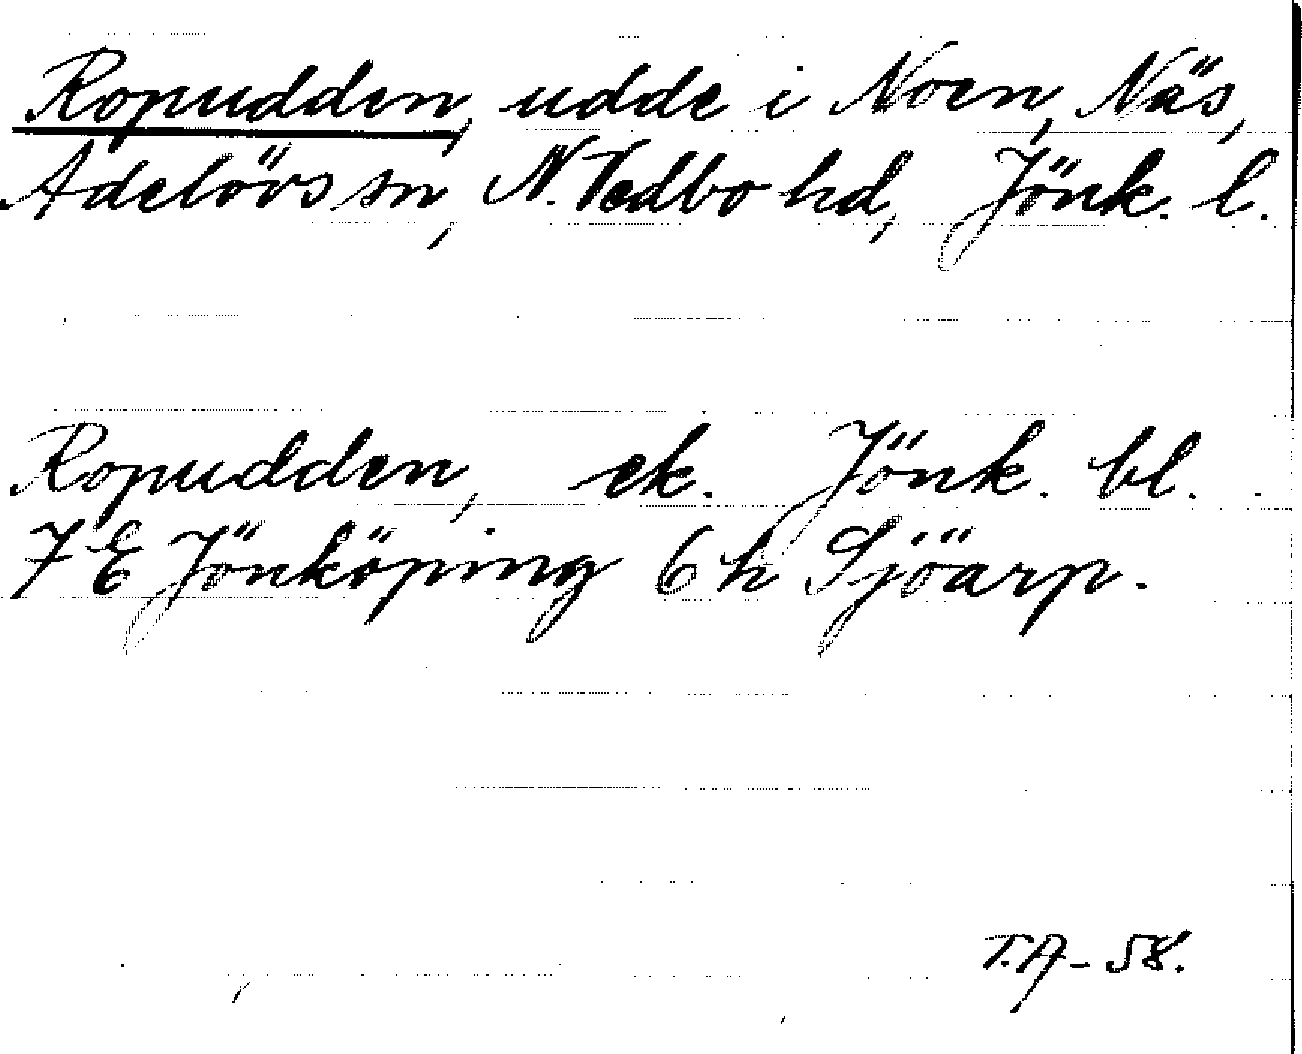 Ropudden, udde i Noen, Näs,
Adelövs sn, N. Vedbo hd, Jönk. l.
Ropudden, ek. Jönk. bl.
7 E Jönköping 6 h Sjöarp.
T.A - 58.